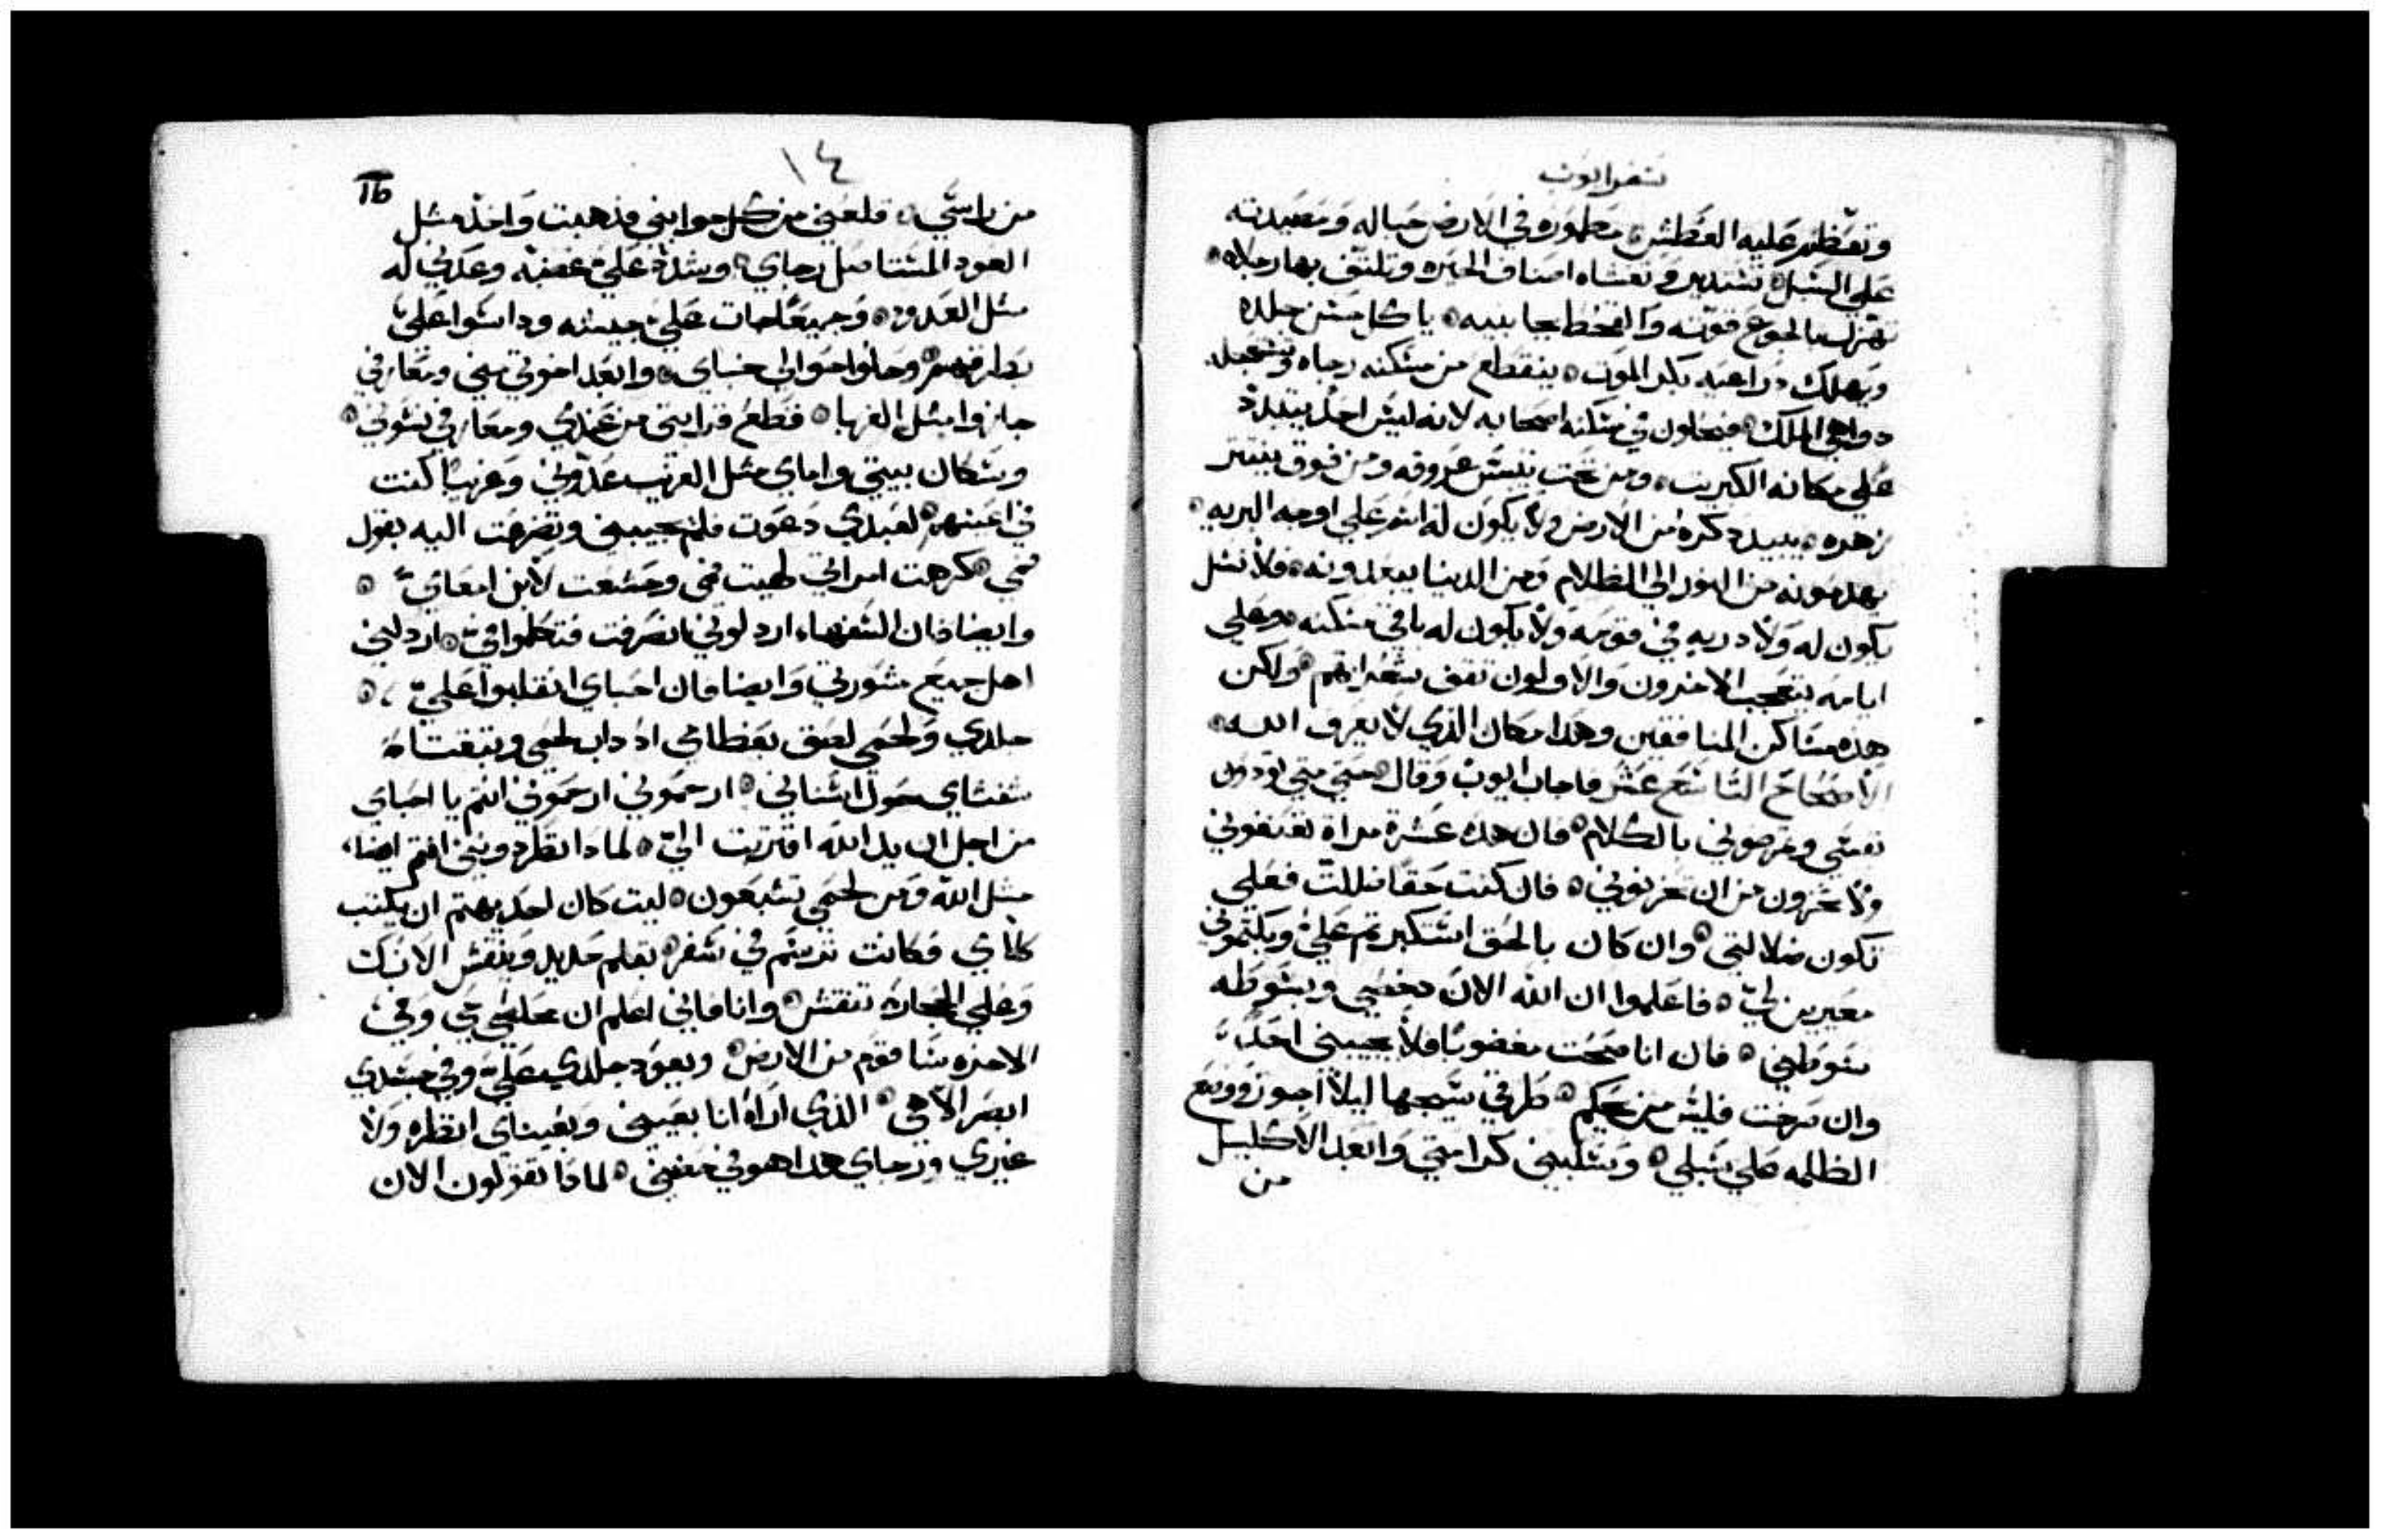 سفر ايوب
وتعظم عليه العطش مطموره في الارض حباله ومصيدته
علي السبل تستدير وتغشاه اصناف الحيره وتلتف بها رجلاه
تهزل بالجوع قوته والقحط بجانبيه ياكل حسن جلده
ويهلك دراعيه بكر الموت ينقطع من مسكنه رجاه وتتعجل
دواهي الملك فيحلون في مسكنه اصحابه لانه ليس احد يتبدد
علي مكانه الكبريت ومن تحت تيبس عروقه ومن فوق ينتتر
زهره يبيد دكره من الارض ولا يكون له اسم علي اوجه البريه
يهدمونه من النور الي الظلام ومن الدنيا يبعدونه فلا نسل
يكون له ولا دريه في قومه ولا يكون له باقي مسكنه وعلي
ايامه يتعجب الاخرون والاولون تقف شعراتهم ولكن
هذه مساكن المنافقين وهذا مكان الذي لا يعرف الله
الاصحاح التاسع عشر فاجاب ايوب وقال حتي متي تودون
نفسي وترضوني بالكلام فان هذه عشرة مراة تعنفوني
ولا تخزون من ان تحزنوني فان كنت حقا ضللت فعلي
تكون ضلالتي وان كان بالحق استكبرتم علي وبكتموني
معيرين لي فاعلموا ان الله الان دحضني وبسوطه
سوطني فان انا صحت مغضوبا فلا يجيبني احد
وان صرخت فليس من يحكم طرقي سيجها ليلا اجوز ووضع
الظلمه علي سبلي وسلبني كرامتي وابعد الاكليل
من
١٤
16
من راسي قلعني من كل جوانبي فذهبت واخد مثل
العود المستاصل رجاي وشدد علي غضبه وعدني له
مثل العدو وجميعا جات علي جيشه وداسوا علي
بطرقهم وحلوا حوالي خباي وابعد اخوتي مني ومعارفي
جازوا مثل الغربا فقطع قرابتي من عندي ومعارفي نسوني
وسكان بيتي واماي مثل الغريب عدوني وغريبا كنت
في اعينهم لعبدي دعوت فلم يجيبني وتضرعت اليه بقول
فمي كرهت امراتي طيبت فمي وخشعت لابن امعاي
وايضا فان السفهاء اردلوني انصرفت فتكلموا في اردلني
اهل جميع مشورتي وايضا فان احباي انقلبوا علي
جلدي ولحمي لصق بعظامي اد داب لحمي وبتفتاه
شفتاي حول اسناني ارحموني ارحموني انتم يا احباي
من اجل ان يد الله اقتربت الي لمادا تطردونني انتم ايضا
مثل الله ومن لحمي تشبعون ليت كان احد يهتم ان يكتب
كلامي فكانت ترسم في سفر بقلم حديد وبنقش الانك
وعلي الحجاره تنقش وانا فاني اعلم ان مخلصي حي وفي
الاخره سا قوم من الارض ويعود جلدي علي وفي جسدي
ابصر الاهي الذي اراه انا بعيني وبعيناي انظره ولا
غيري ورجاي هذا هو في حضني لمادا تقولون الان